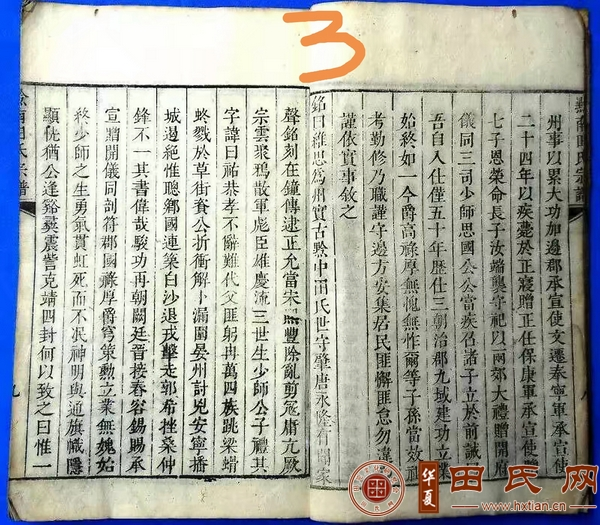 3
黔南田氏宗譜
州事以累大功加邊郡承宣使文遷泰寧軍承宣使
二十四年以疾薨於正寢贈正任保康軍承宣使
七子恩榮命長子汝端襲守祀以兩郊大禮贈開府
儀同三司少師思國公公當疾召諸子立於前誡
吾自入仕僅五十年歷仕三朝治郡九域建功立業
始終如一今爵高祿厚無愧無怍爾等子孫當效
考勤修乃職謹守邊方安集居民匪懈匪怠勿違
謹依實事敘之
銘曰維思為州實古黔中田氏世守肇唐永隆有開家
聲銘刻在鐘傳逮正允當宋 豐除亂剪寇庸亢厥
宗雲聚鴉散軍彪臣雄慶流三世生少師公子禮其
字諱曰祐恭孝不辭難代父匪躬冉萬四族跳梁螘
蜂戮於草街賚公折衝解卜漏圍晏州討兇安寧播
城邊絕惟聰鄉國連築白沙退戎擊走郭希挫桑仲
鋒不一其書偉哉駿功再朝闕廷晉接春谷錫賜承
宣贈開儀同剖符郡國祿厚爵穹策勳立業無媿始
終少師之生勇氣貫虹死而不泯神明與通旗幟隱
顯恍猶公逢谿蠻震讋克靖四封何以致之曰惟一
南田氏宗譜
九
华夏
田氏网
www.hxtian.cn